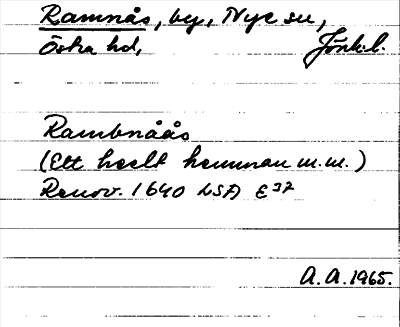 Ramnås, by, Nye sn,
Östra hd, Jönk.l.
Rambnåås
(Ett heelt hemman m.m.)
Renov. 1640 LSA E 32
A.A. 1965.